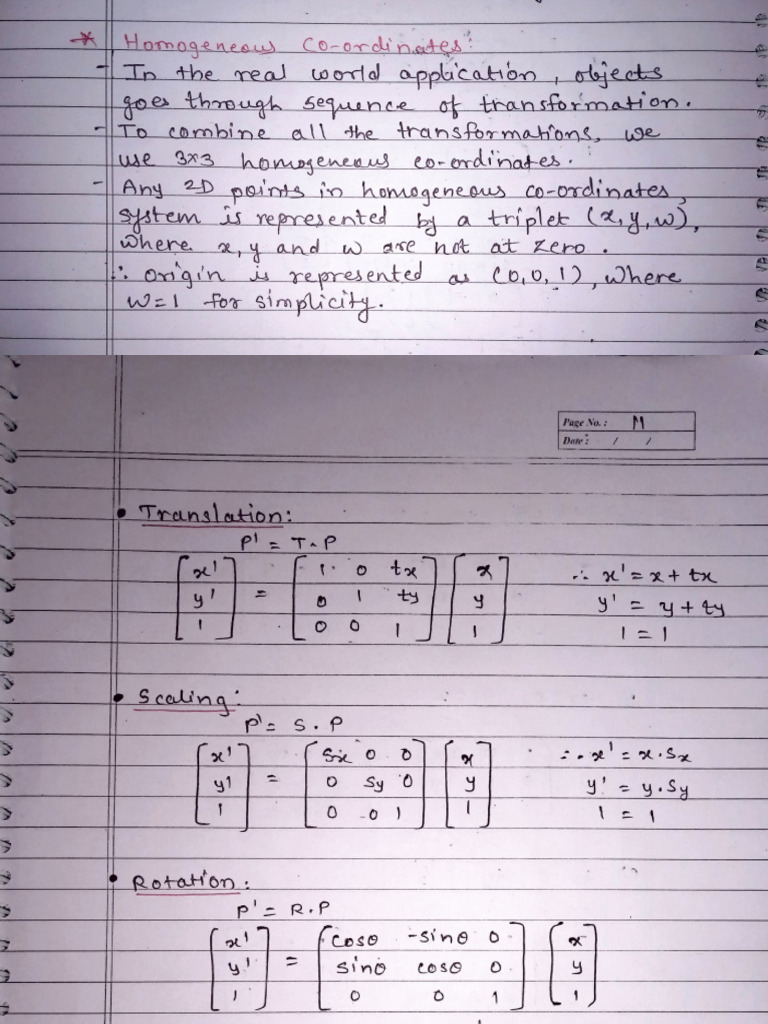 * Homogeneous Co-ordinates:
- In the real world application, objects
goes through sequence of transformation.
- To combine all the transformations, we
use 3x3 homogeneous co-ordinates.
- Any 2D points in homogeneous co-ordinates,
system is represented by a triplet (x, y, w),
where x, y and w are not at zero.
∴ origin is represented as (0,0,1), where
w=1 for simplicity.
Page No.: 11
Date: / /
• Translation:
P' = T.P
[x'] = [1 0 tx] [x] ∴ x' = x + tx
[y'] [0 1 ty] [y] y' = y + ty
[1] [0 0 1] [1] 1 = 1
• Scaling:
P' = S.P
[x'] = [Sx 0 0] [x] ∴ x' = x.Sx
[y'] [0 Sy 0] [y] y' = y.Sy
[1] [0 0 1] [1] 1 = 1
• Rotation:
P' = R.P
[x'] = [cosθ -sinθ 0] [x]
[y'] [sinθ cosθ 0] [y]
[1] [0 0 1] [1]